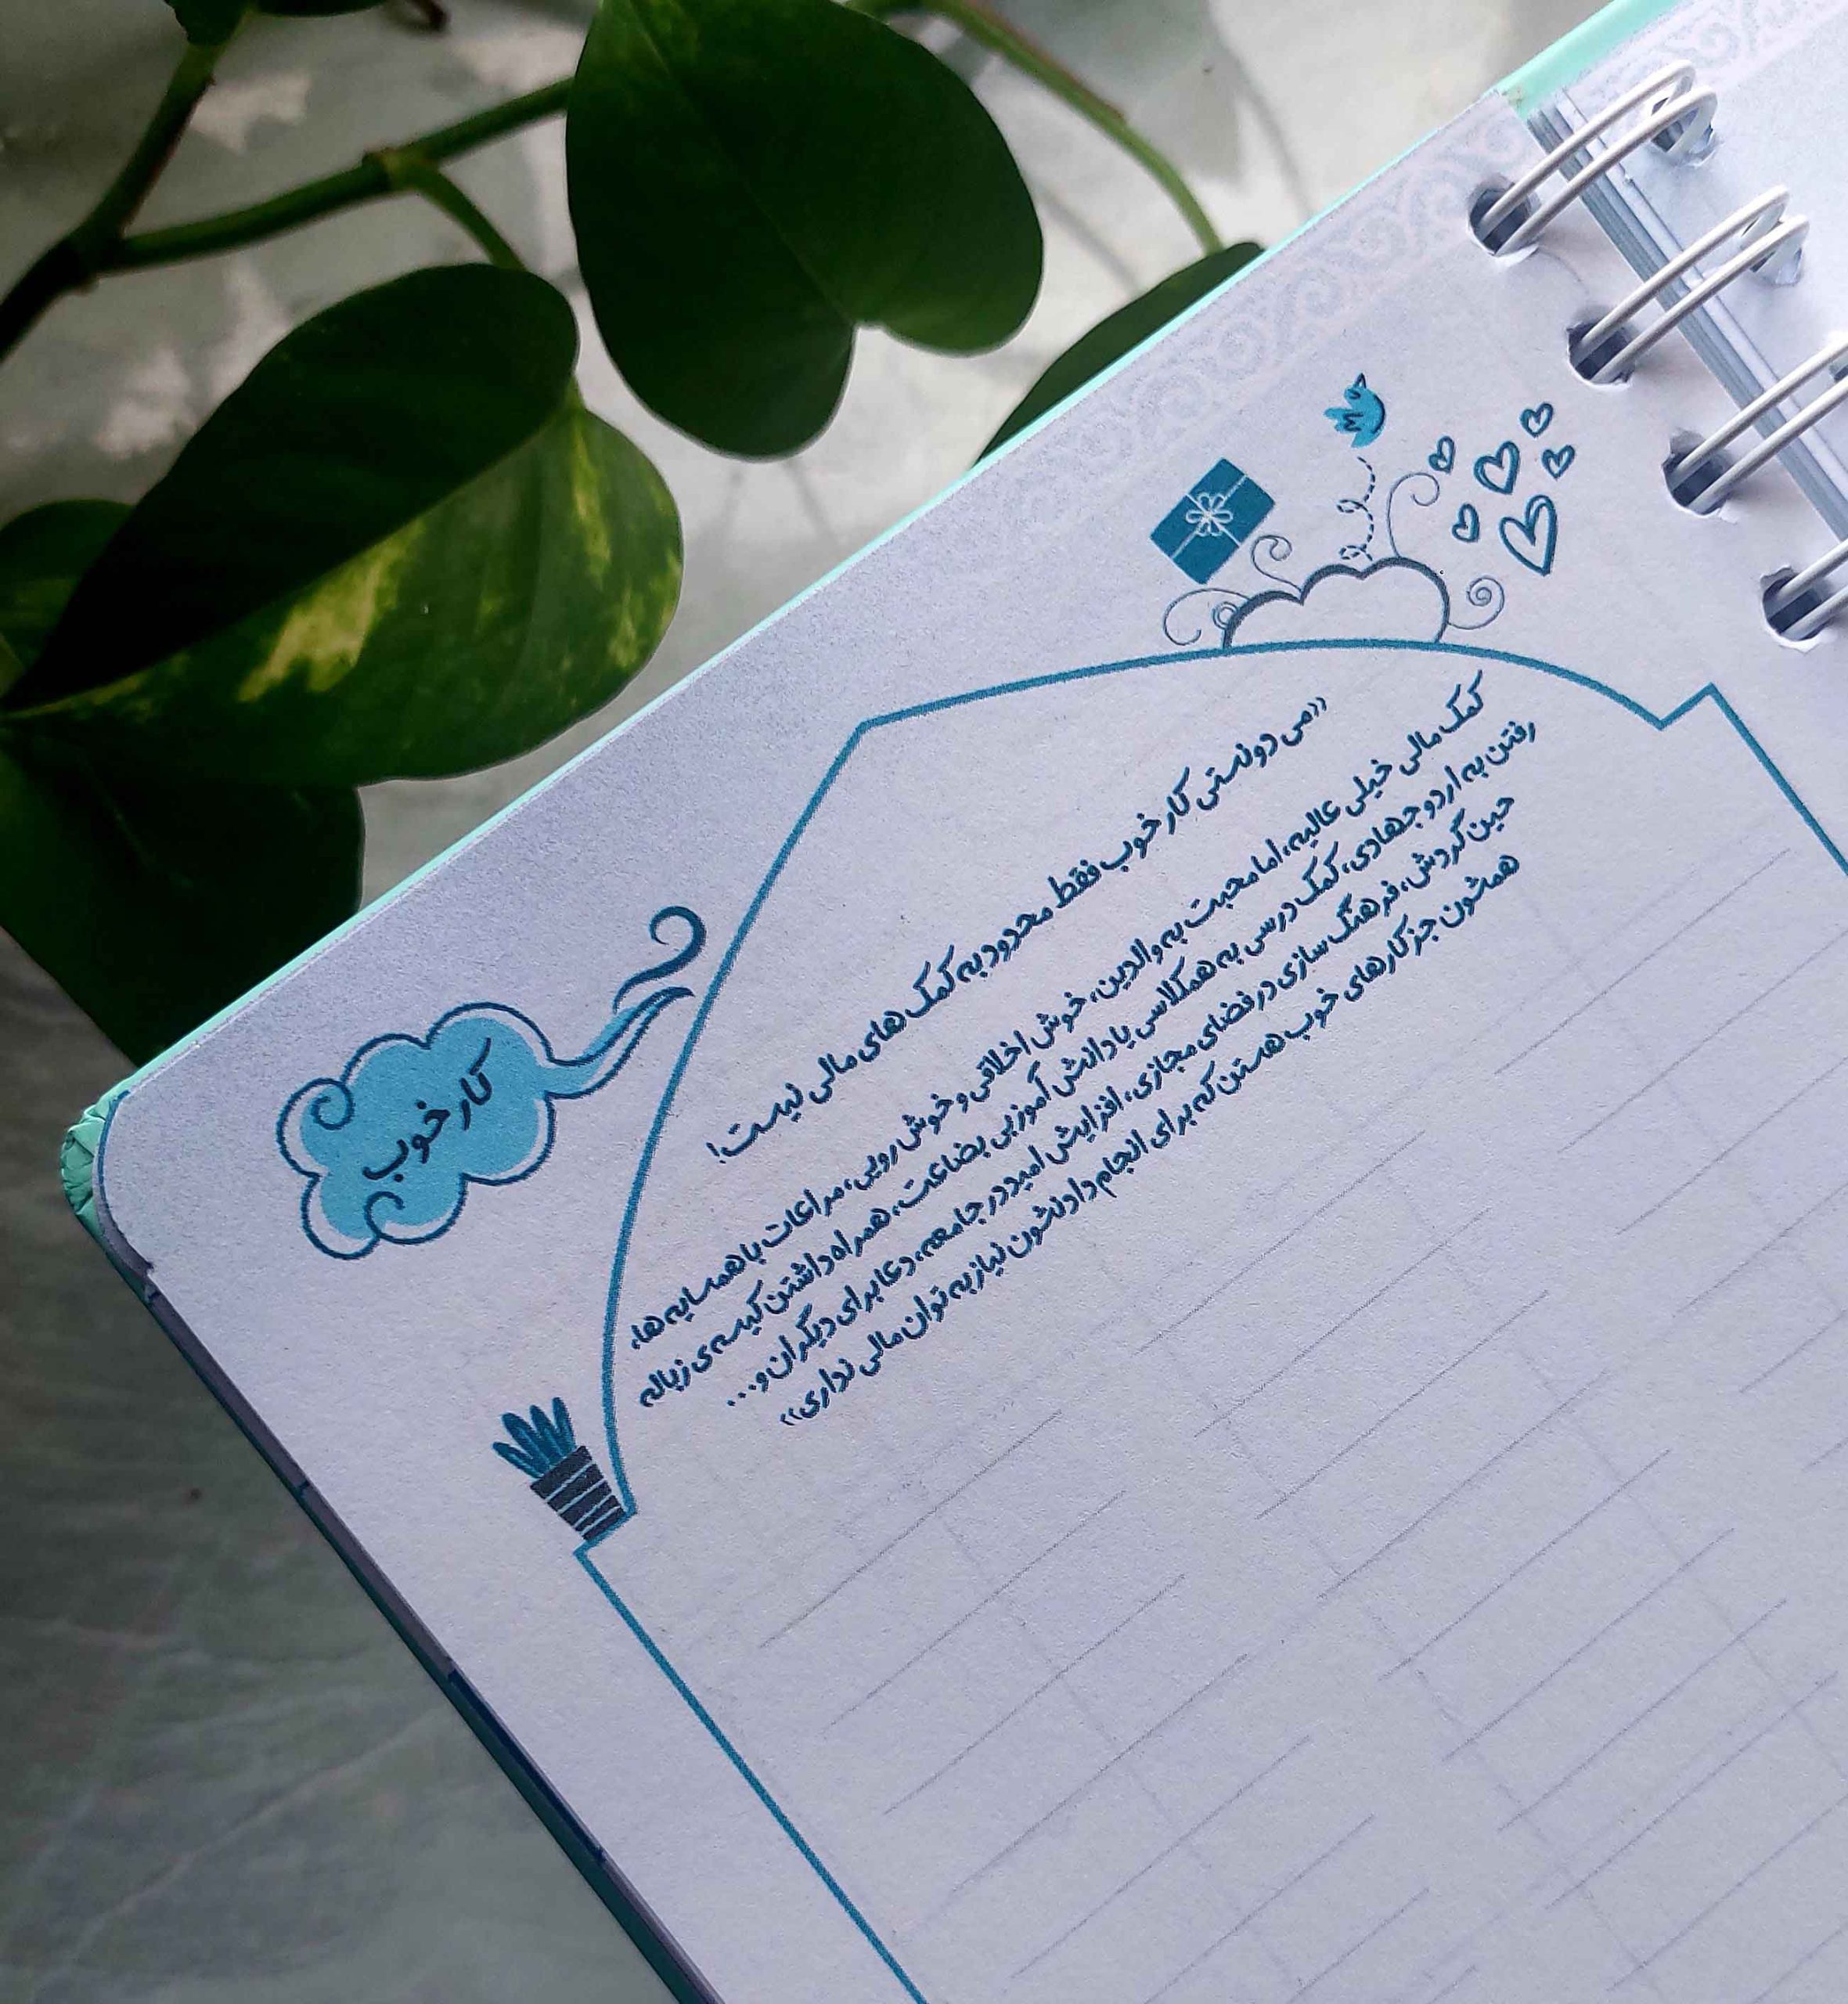 کار خوب
«می دونستی کار خوب فقط محدود به کمک های مالی نیست!
کمک مالی خیلی عالیه، اما محبت به والدین، خوش اخلاقی و خوش رویی، مراعات با همسایه ها،
رفتن به اردو جهادی، کمک درسی به همکلاسی یا دانش آموز بی بضاعت، همراه داشتن کیسه ی زباله
حین گردش، فرهنگ سازی در فضای مجازی، افزایش امید در جامعه، دعا برای دیگران و...
همشون جز کارهای خوب هستن که برای انجام دادنشون نیاز به توان مالی نداری»